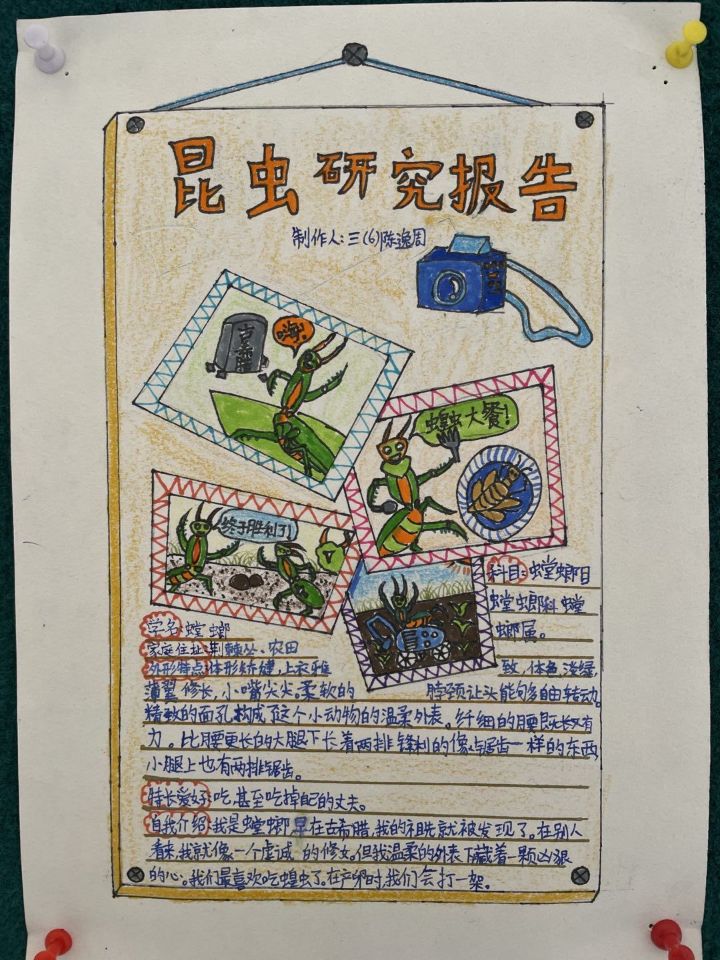 昆虫研究报告
制作人:三(6)陈逸周
古希腊
嗨!
蝗虫大餐!
终于胜利了!
科目:螳螂目
螳螂科 螳
螂属。
学名:螳螂
家庭住址:荆棘丛、农田
外形特点:体形矫健,上衣雅致,体色淡绿,
薄翼修长,小嘴尖尖。柔软的脖颈让头能够自由转动。
精致的面孔,构成了这个小动物的温柔外表。纤细的腰既长又有
力。比腰更长的大腿下长着两排锋利的像锯齿一样的东西
小腿上也有两排锯齿。
特长爱好:吃,甚至吃掉自己的丈夫。
自我介绍:我是螳螂,早在古希腊,我的祖先就被发现了。在别人
看来,我就像一个虔诚的修女。但我温柔的外表下藏着一颗凶狠
的心。我们最喜欢吃蝗虫了。在产卵时,我们会打一架。